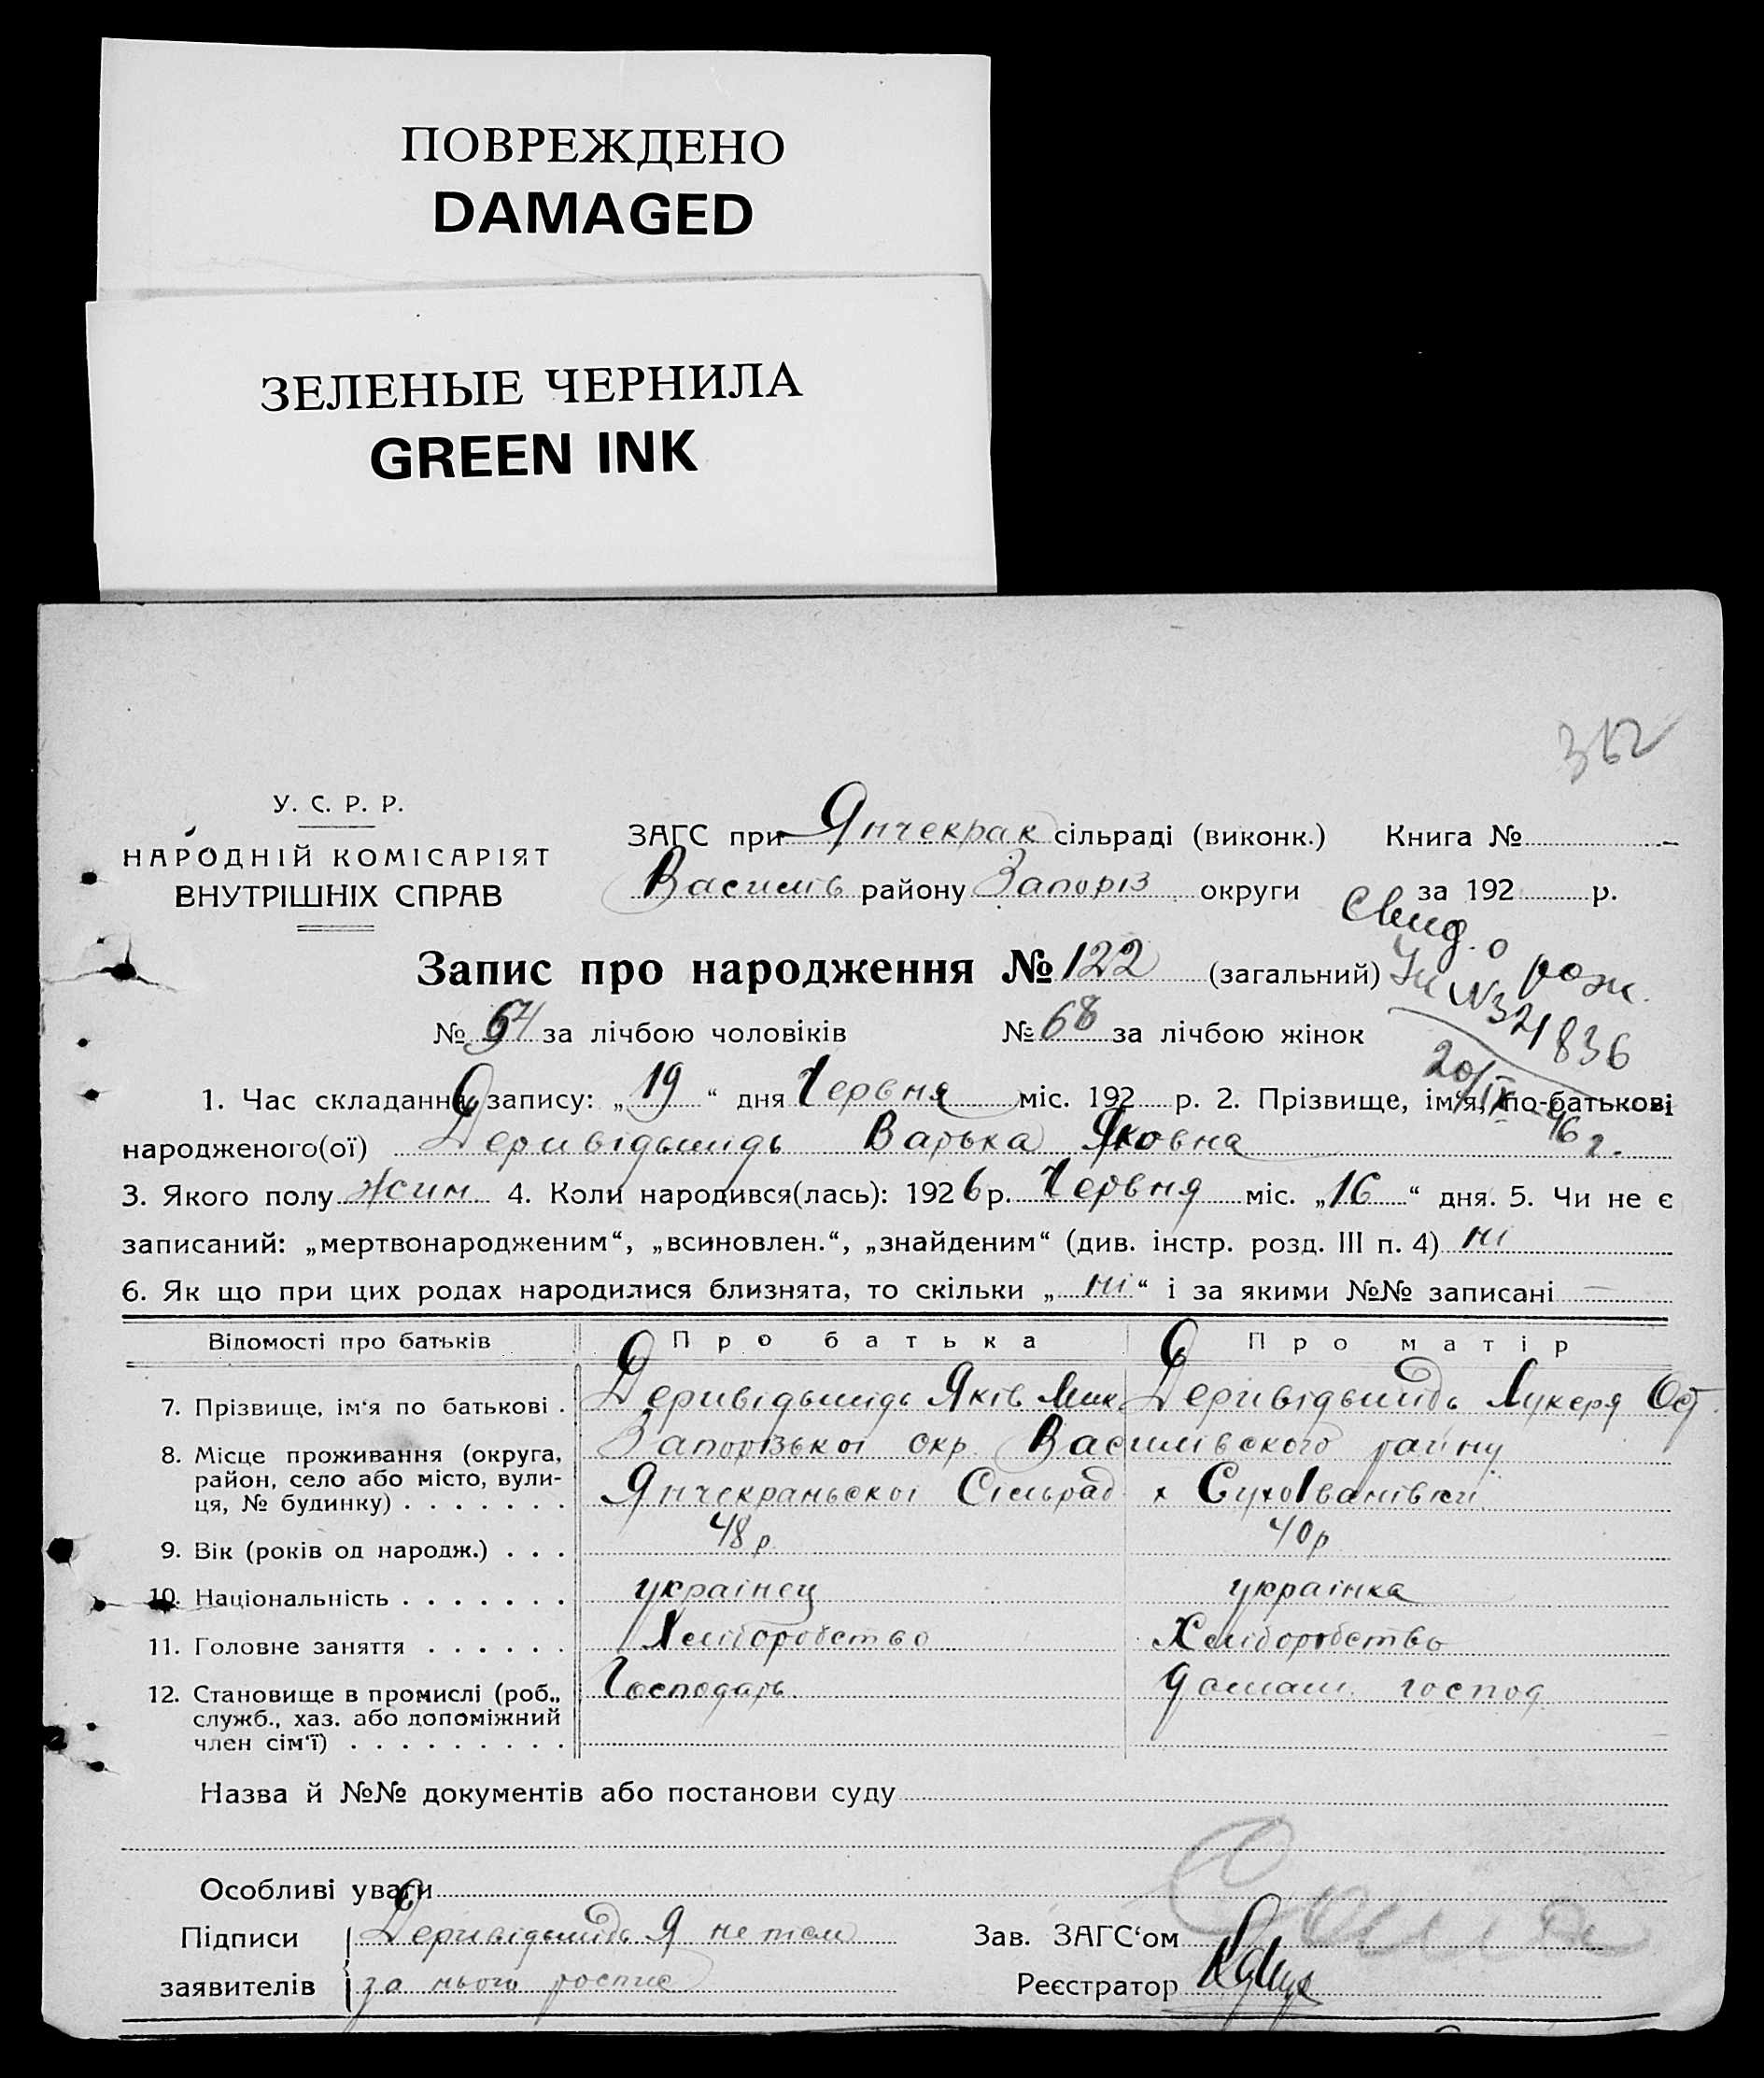 ПОВРЕЖДЕНО
DAMAGED
ЗЕЛЕНЫЕ ЧЕРНИЛА
GREEN INK
362
У. С. Р. Р.
НАРОДНІЙ КОМІСАРІЯТ
ВНУТРІШНІХ СПРАВ
ЗАГС при Янчекрак сільраді (виконк.) Книга №
Василів району Запоріз округи за 192 р.
Свид. о рож.
№ 321836
20/IX 46 г.
Запис про народження № 122 (загальний)
№ 54 за лічбою чоловіків № 68 за лічбою жінок
1. Час складання запису: „19“ дня Червня міс. 192 р. 2. Прізвище, ім'я, по-батькові
народженого(ої) Деривідьмидь Варька Яковна
3. Якого полу жин 4. Коли народився(лась): 1926 р. Червня міс. „16“ дня. 5. Чи не є
записаний: „мертвонародженим“, „всиновлен.“, „знайденим“ (див. інстр. розд. III п. 4) ні
6. Як що при цих родах народилися близнята, то скільки „ні“ і за якими №№ записані —
Відомості про батьків Про батька Про матір
7. Прізвище, ім'я по батькові . Деривідьмидь Яків Мик Деривідьмидь Лукеря Ост
8. Місце проживання (округа, Запорізької окр. Василівского району
район, село або місто, вули-
ця, № будинку) . . . . . . . Янчекраньскоі Сільрад х СухоІванівки
9. Вік (років од народж.) . . . 48 р 40 р
10. Національність . . . . . . . українец українка
11. Головне заняття . . . . . . Хліборобство Хліборобство
12. Становище в промислі (роб., Господарь домаш. господ
служб., хаз. або допоміжний
член сім'ї) . . . . . . . . .
Назва й №№ документів або постанови суду
Особливі уваги
Підписи Деривідьмидь Я не писм Зав. ЗАГС'ом
заявителів за нього роспис Реєстратор